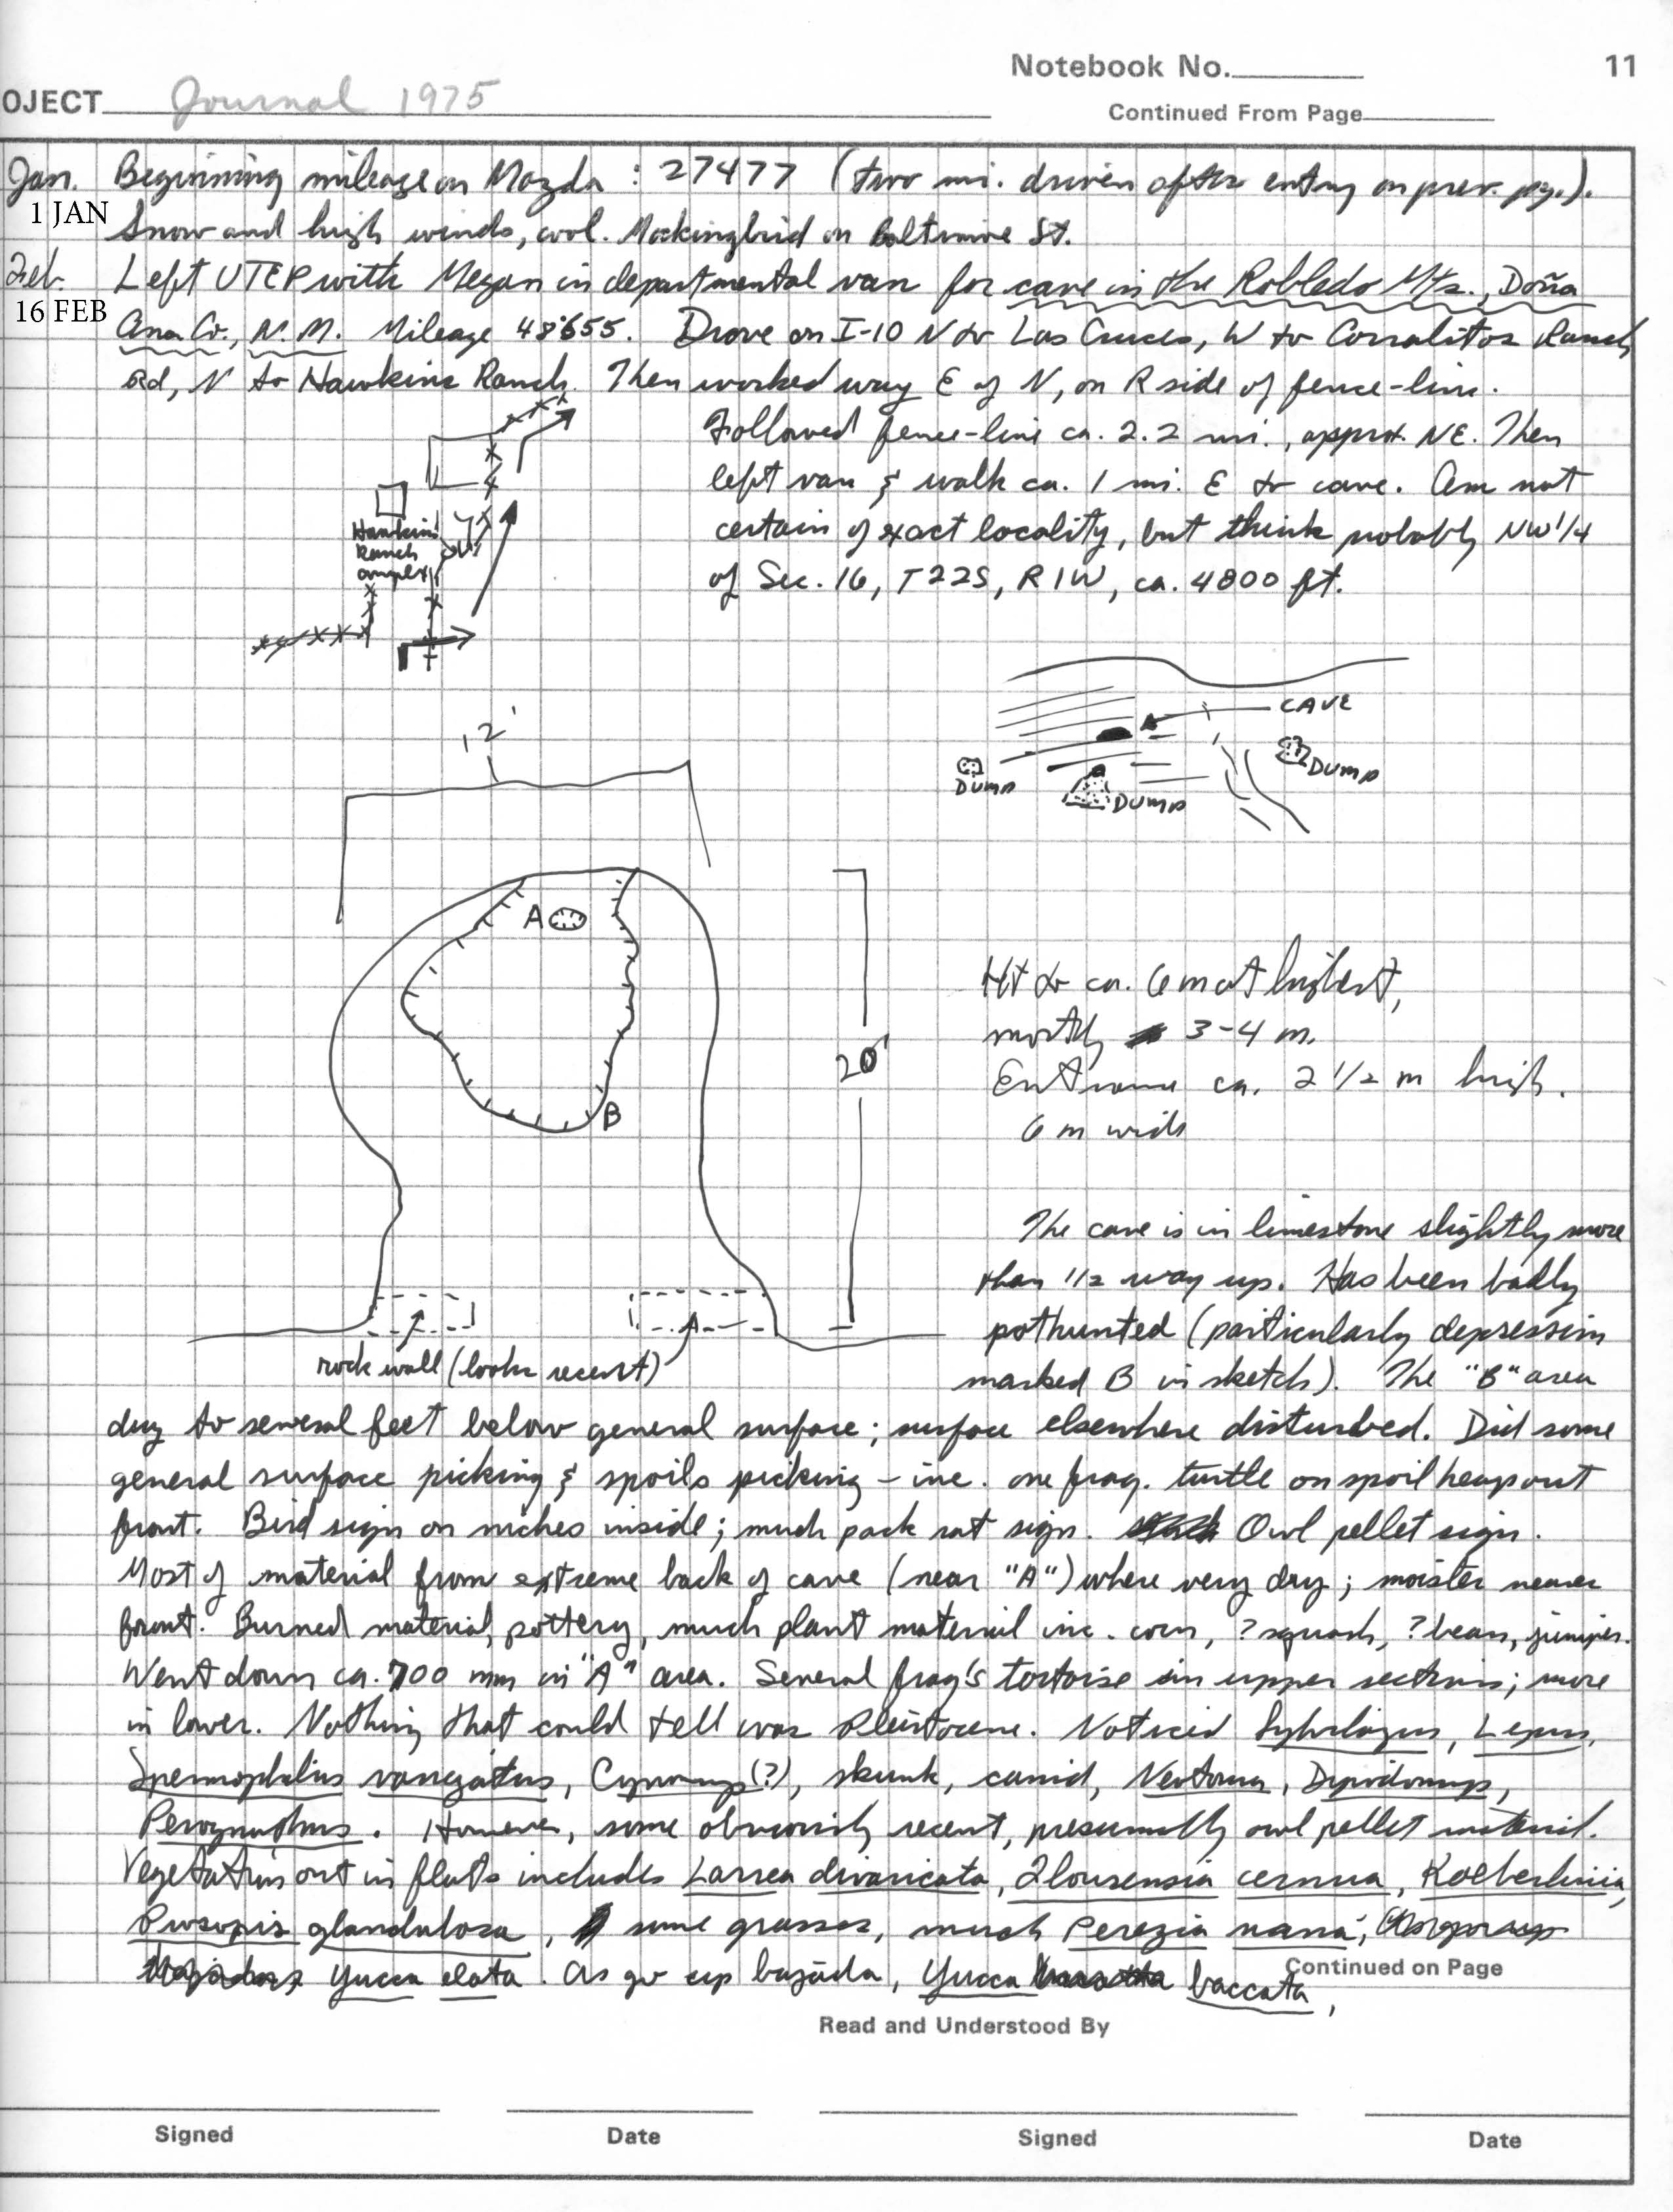 Notebook No. 11
OJECT Journal 1975
Continued From Page
Jan. Beginning mileage on Mazda : 27477 (two mi. driven after entry on prev. pg.).
1 JAN
Snow and high winds, cool. Mockingbird on Baltimore St.
Feb. Left UTEP with Megan in departmental van for cave in the Robledo Mts., Doña
16 FEB
Ana Co., N.M. Mileage 48655. Drove on I-10 N to Las Cruces, W to Corralitos Ranch
Rd, N to Hawkins Ranch. Then worked way E of N, on R side of fence-line.
Followed fence-line ca. 2.2 mi., approx. NE. Then
left van & walk ca. 1 mi. E to cave. Am not
certain of exact locality, but think probably NW 1/4
of Sec. 16, T22S, R1W, ca. 4800 ft.
Hawkins
Ranch
complex
CAVE
DUMP
DUMP
DUMP
12'
A
20'
B
Ht to ca. 6 m at highest,
mostly 3-4 m.
Entrance ca. 2 1/2 m high.
6 m wide
The cave is in limestone slightly more
than 1/2 way up. Has been badly
pothunted (particularly depression
marked B in sketch). The "B" area
rock wall (looks recent)
dug to several feet below general surface; surface elsewhere disturbed. Did some
general surface picking & spoils picking - inc. one frag. turtle on spoil heap out
front. Bird sign on niches inside; much pack rat sign. Owl pellet sign.
Most of material from extreme back of cave (near "A") where very dry; moister nearer
front. Burned material, pottery, much plant material inc. corn, ?squash, ?bean, juniper.
Went down ca. 700 mm in "A" area. Several frag's tortoise in upper sections; more
in lower. Nothing that could tell was Pleistocene. Noticed Sylvilagus, Lepus,
Spermophilus variegatus, Cynomys(?), skunk, canid, Neotoma, Dipodomys,
Perognathus. However, some obviously recent, presumably owl pellet material.
Vegetation out in flats includes Larrea divaricata, Flourensia cernua, Koeberlinia,
Prosopis glandulosa, some grasses, much Perezia nana,
Yucca elata. As go up bajada, Yucca baccata,
Continued on Page
Read and Understood By
Signed Date Signed Date